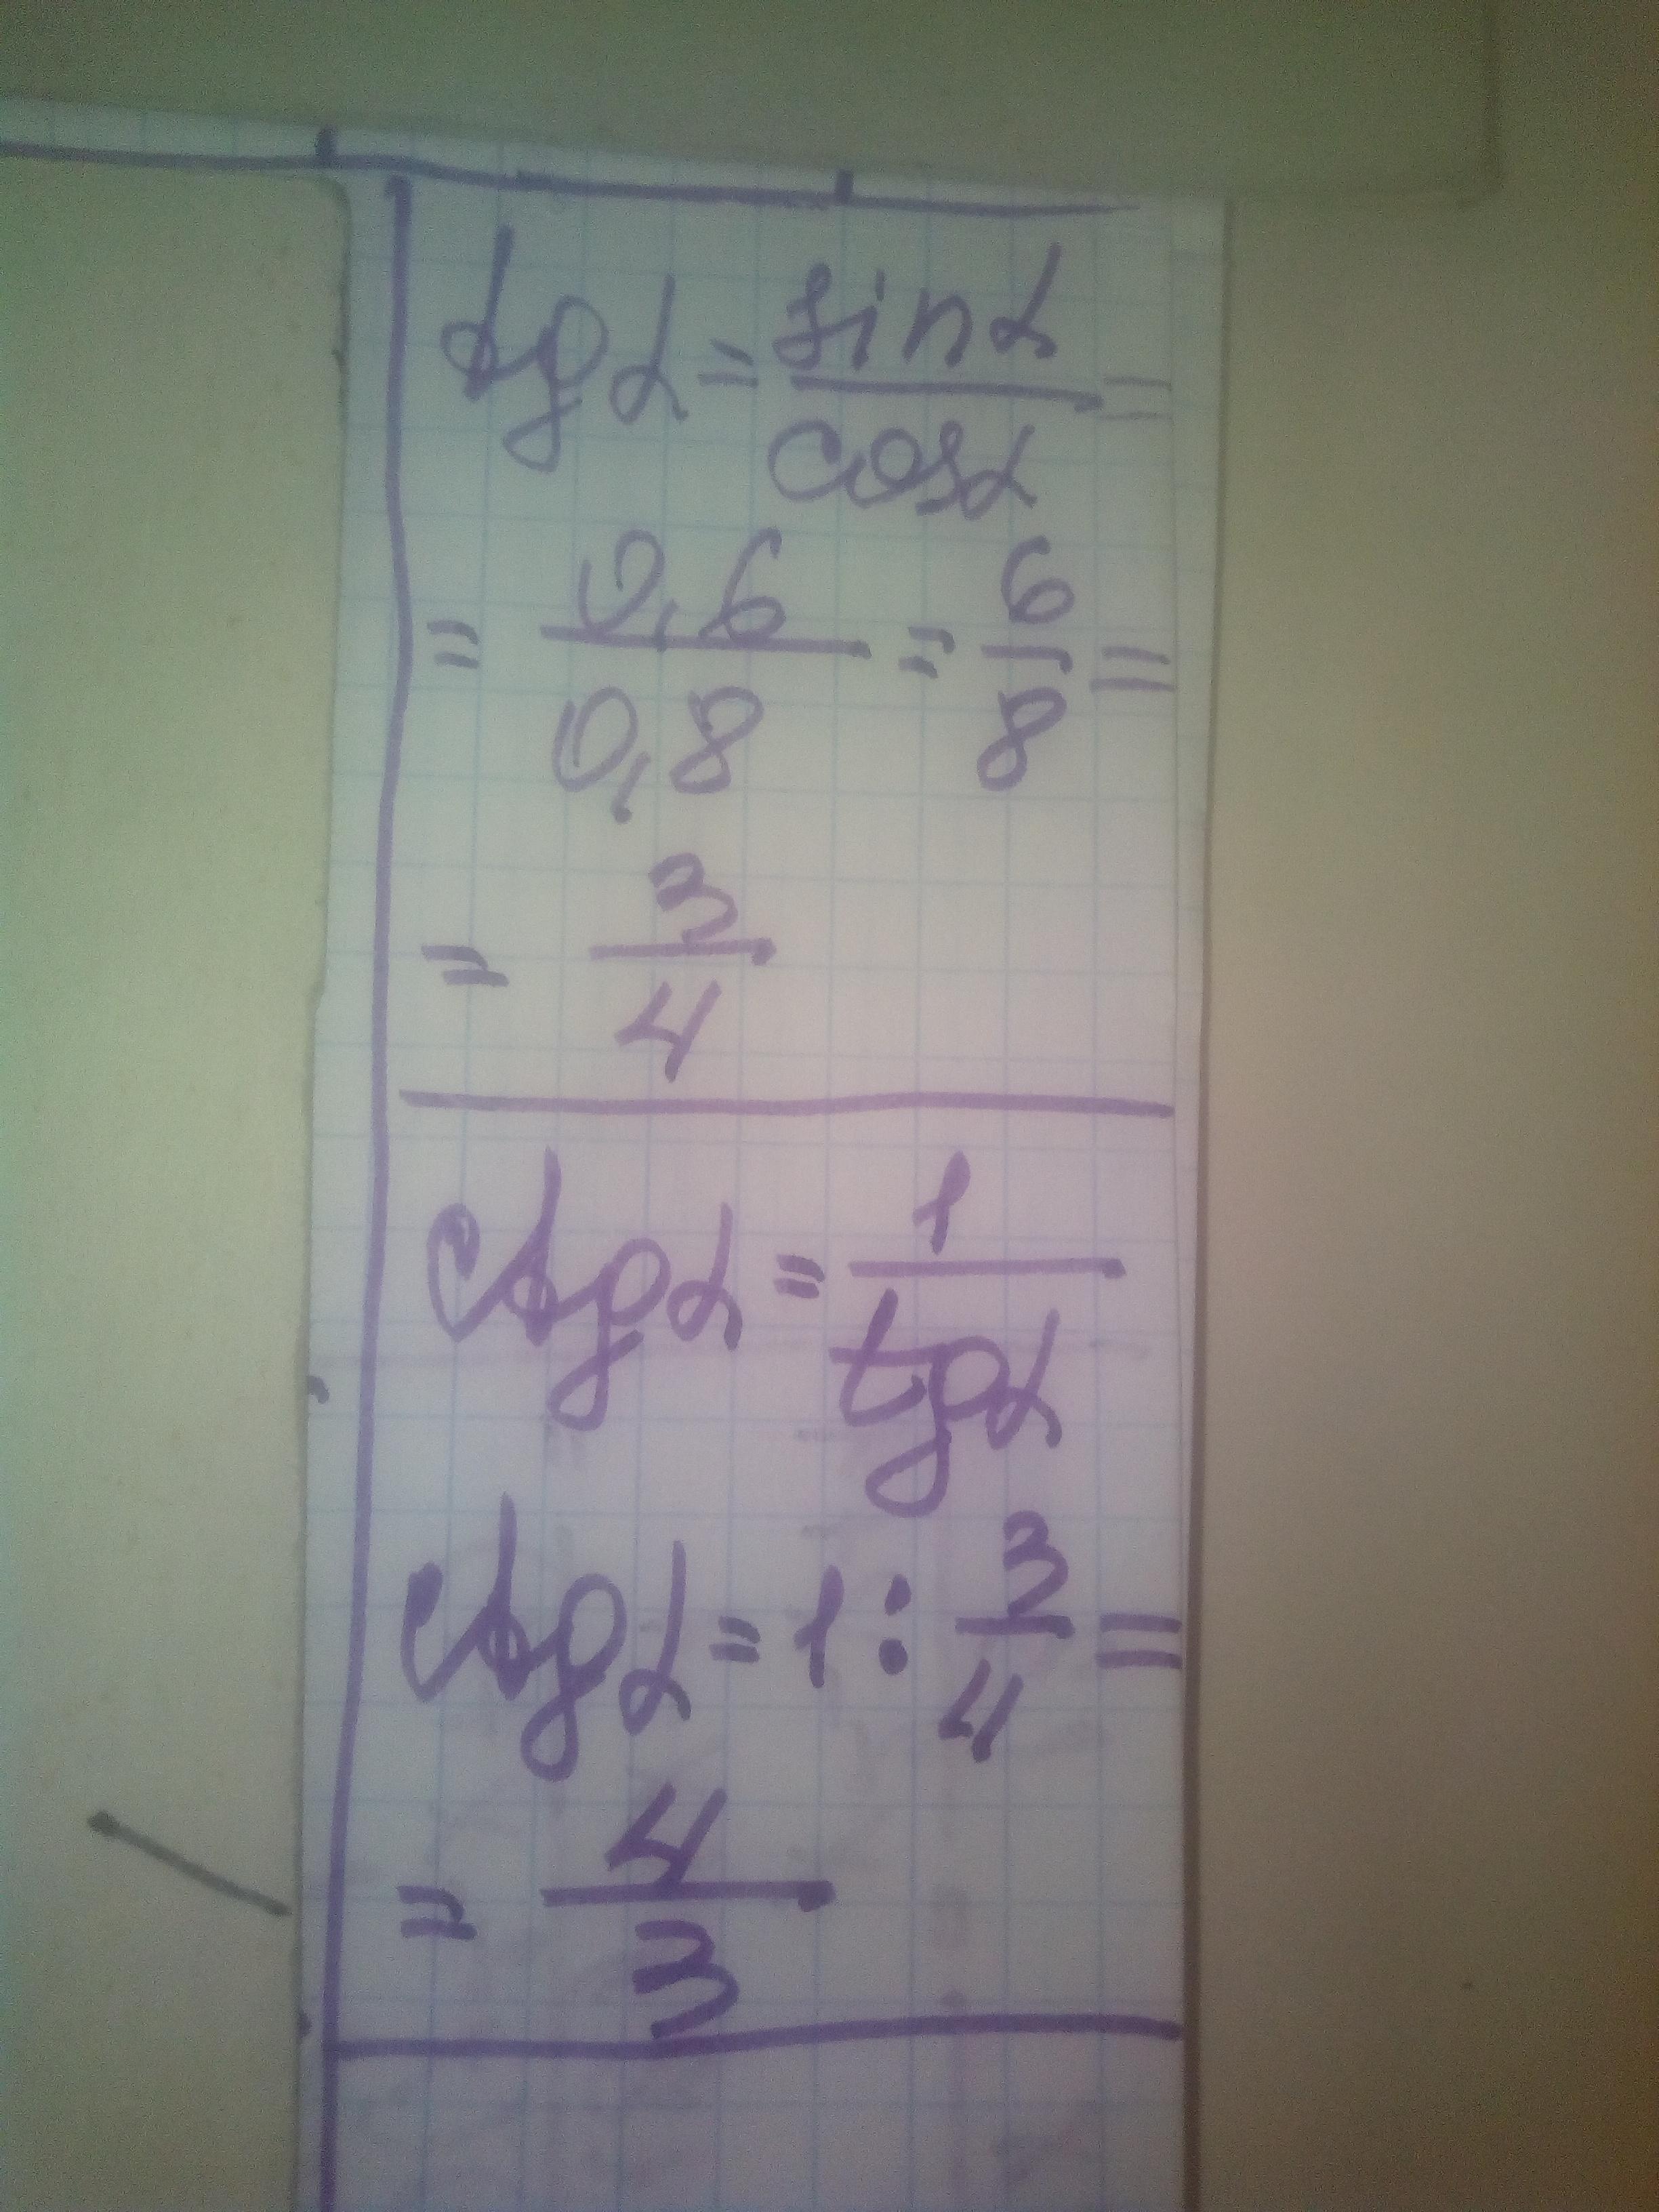 tg α = sin α / cos α =
= 0,6 / 0,8 = 6/8 =
= 3/4
ctg α = 1 / tg α
ctg α = 1 : 3/4 =
= 4/3